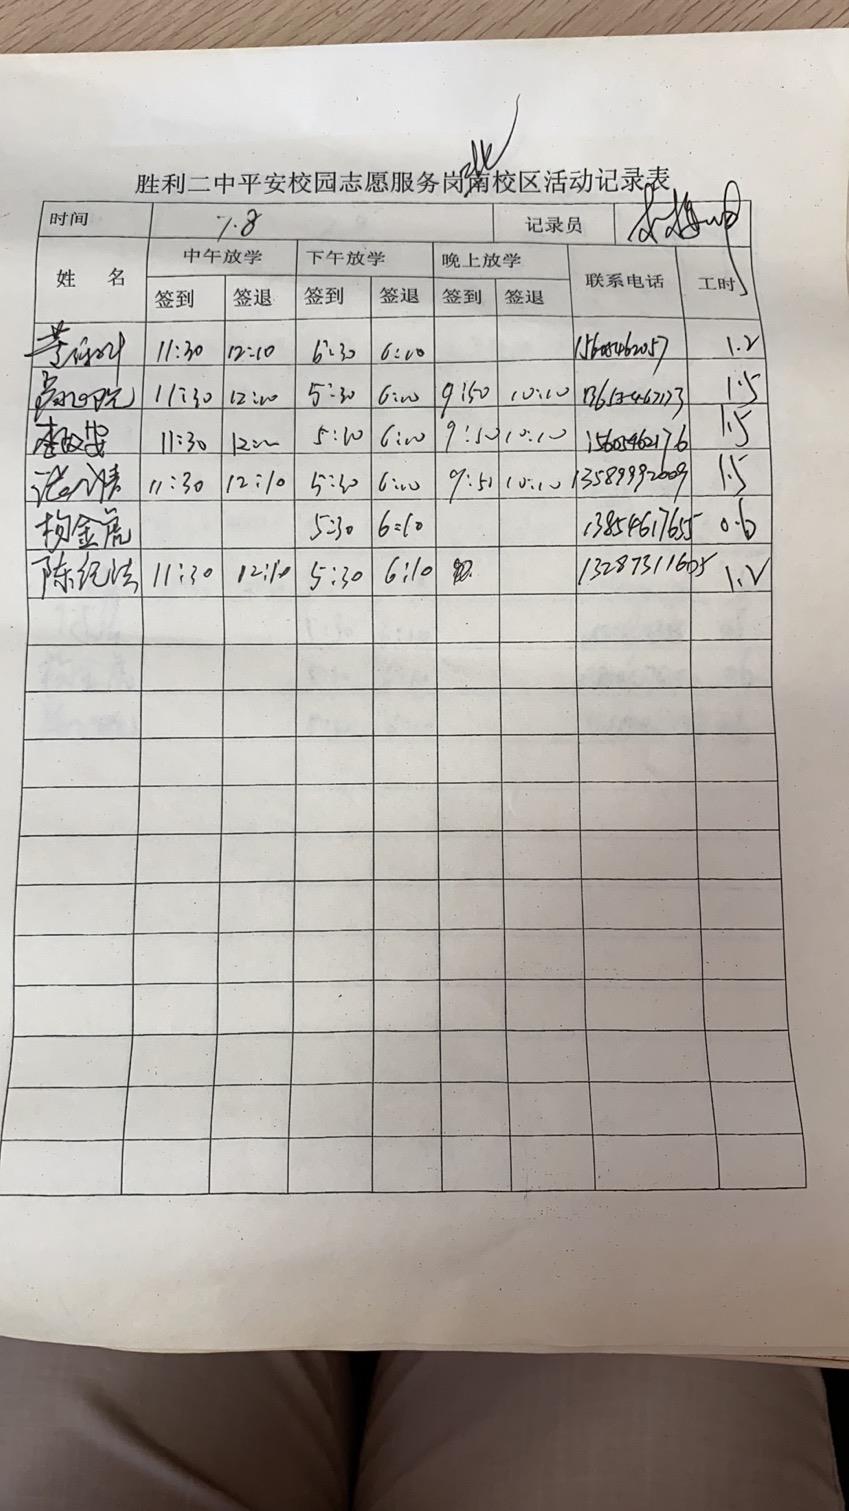 北
胜利二中平安校园志愿服务岗南校区活动记录表
时间 7.8 记录员
姓 名 中午放学 下午放学 晚上放学 联系电话 工时
签到 签退 签到 签退 签到 签退
11:30 12:10 6:30 6:00 15605462057 1.2
11:30 12:00 5:30 6:00 9:50 10:10 1.5
11:30 12:00 5:10 6:00 9:50 10:10 15605462176 1.5
11:30 12:10 5:30 6:00 9:50 10:10 13589992009 1.5
杨金虎 5:30 6:10 13854617655 0.6
陈纪法 11:30 12:10 5:30 6:10 13287311605 1.2